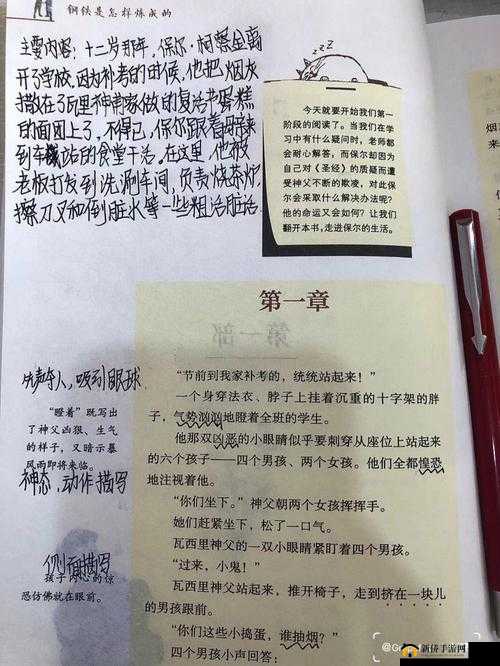 钢铁是怎样炼成的
主要内容:十二岁那年,保尔·柯察金离
开了学校,因为补考的时候,他把烟灰
撒在了瓦里神甫家做的复活节蛋糕
的面团上了。不得已,保尔跟着哥哥来
到车站的食堂干活。在这里,他被
老板打发到洗涮车间,负责烧茶炉,
擦刀叉和倒脏水等一些粗活脏活
今天就要开始我们第一
阶段的阅读了。当我们在学
习中有什么疑问时,老师都
会耐心解答,而保尔却因为
自己对《圣经》的质疑而遭
受神父不断的欺凌,对此保
尔会采取什么解决办法呢?
他的命运又会如何?让我们
翻开本书,走进保尔的生活。
第一章
先声夺人,吸引眼球
“瞪着”既写出
了神父凶狠、生气
的样子,又暗示暴
风雨即将来临。
神态,动作描写
侧面描写
孩子们的惊
恐仿佛就在眼前。
“节前到我家补考的,统统站起来!”
一个身穿法衣、脖子上挂着沉重的十字架的胖
子,气势汹汹地瞪着全班的学生。
他那双凶恶的小眼睛似乎要刺穿从座位上站起来
的六个孩子——四个男孩、两个女孩。他们全都惶恐
地注视着他。
“你们坐下。”神父朝两个女孩挥挥手。
她们赶紧坐下,松了一口气。
瓦西里神父的一双小眼睛紧盯着四个男孩。
“过来,小鬼!”
瓦西里神父站起来,推开椅子,走到挤在一块儿
的男孩跟前。
“你们这些小捣蛋,谁抽烟?”
四个男孩小声回答:
新侠手游网